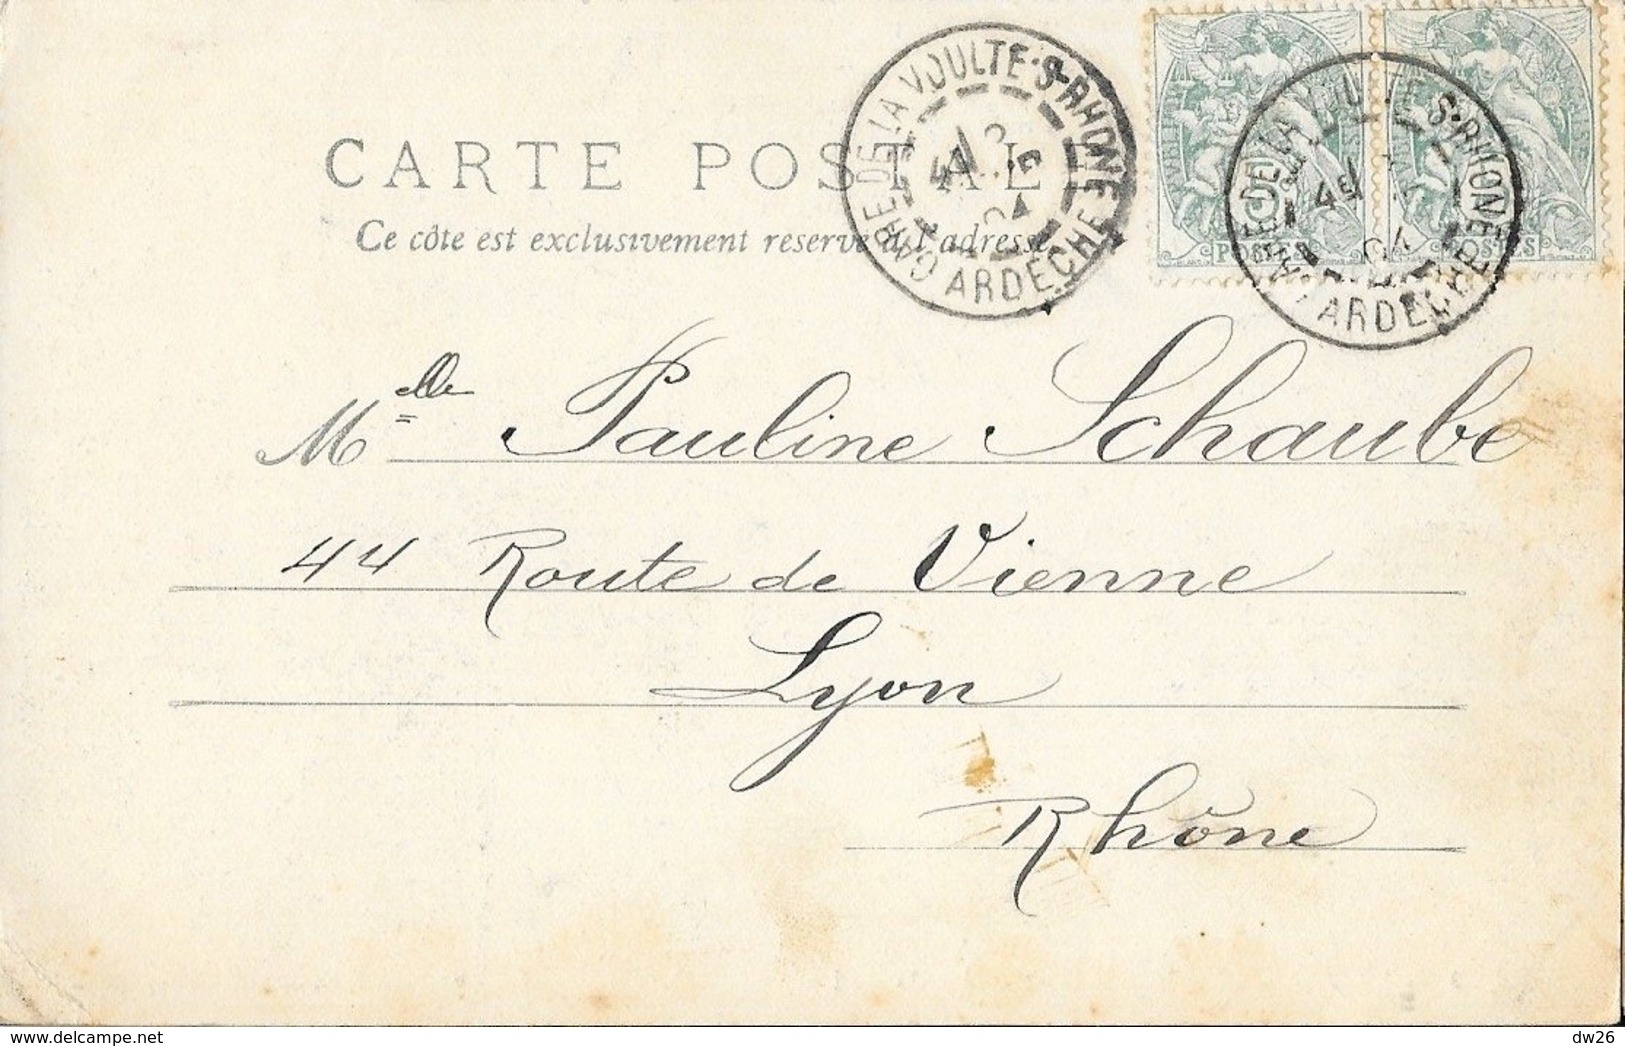 CARTE POSTALE
Ce côte est exclusivement reservé à l'adresse
GARE DE LA VOULTE-S-RHONE
ARDÈCHE
04
POSTES
POSTES
GARE DE LA VOULTE-S-RHONE
04
ARDÈCHE
Mlle Pauline Schaube
44 Route de Vienne
Lyon
Rhône
dw26